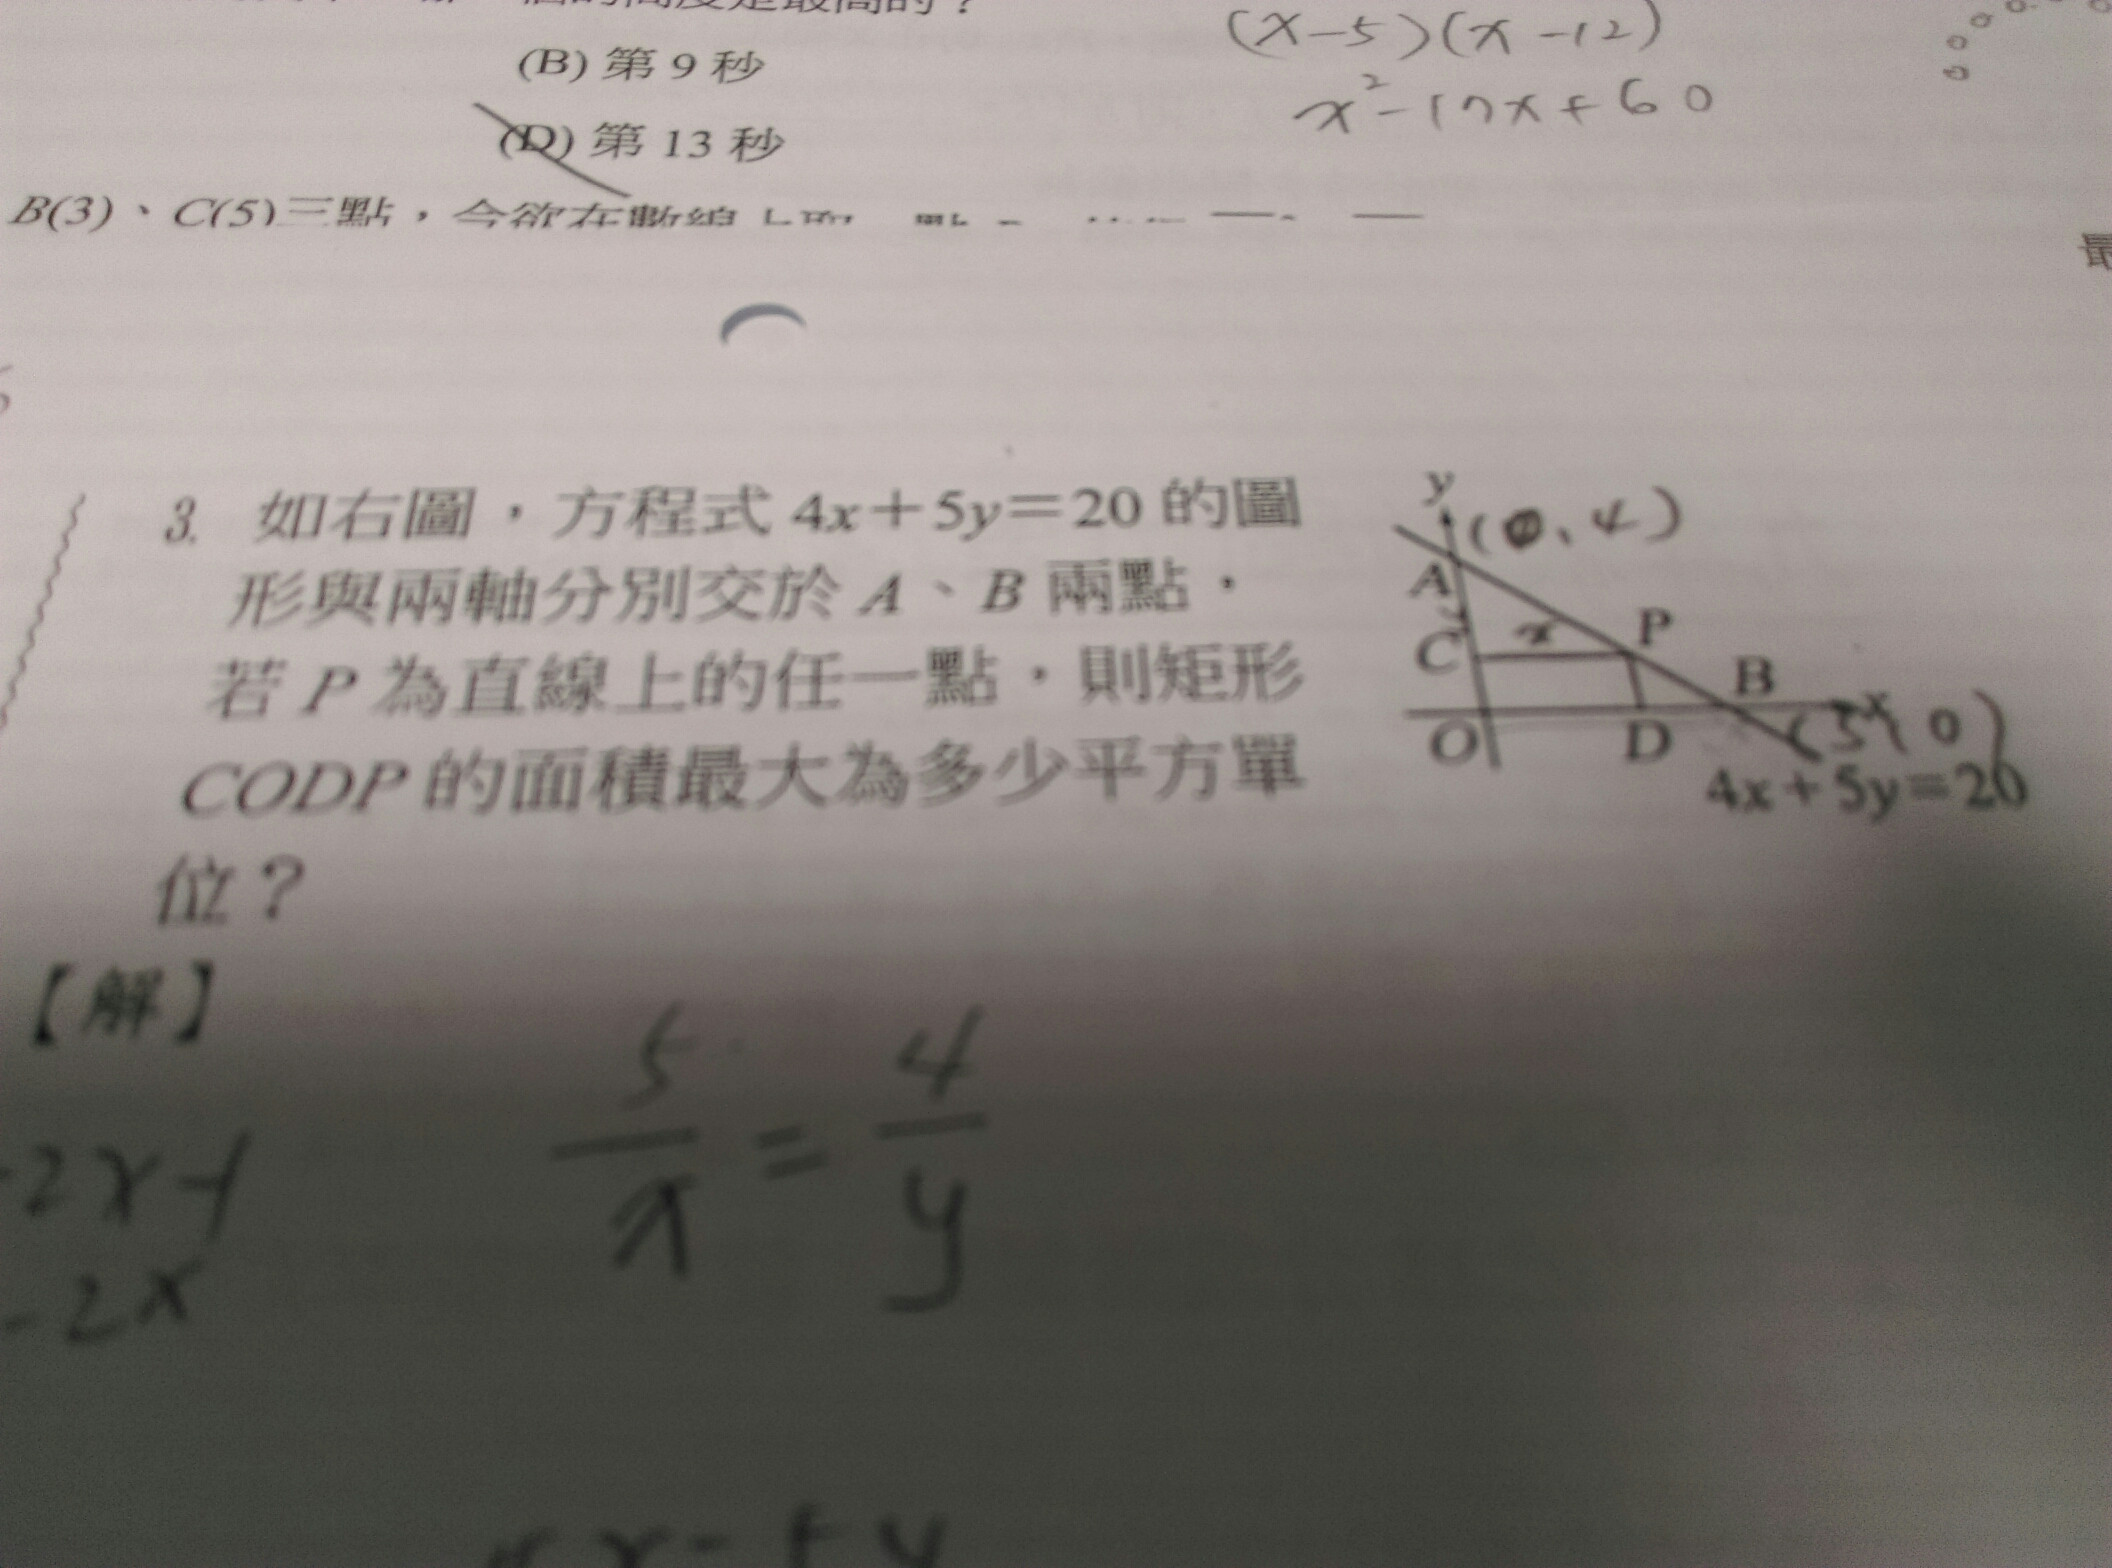 (x-5)(x-12)
(B) 第 9 秒
x²-17x+60
(D) 第 13 秒
B(3)、C(5)三點，今欲在數線上取
最
3. 如右圖，方程式 4x＋5y＝20 的圖
形與兩軸分別交於 A、B 兩點，
若 P 為直線上的任一點，則矩形
CODP 的面積最大為多少平方單
位？
y
(0、4)
A
C
x
P
B
O
D
x
(5、0)
4x＋5y＝20
【解】
5/x = 4/y
-2x